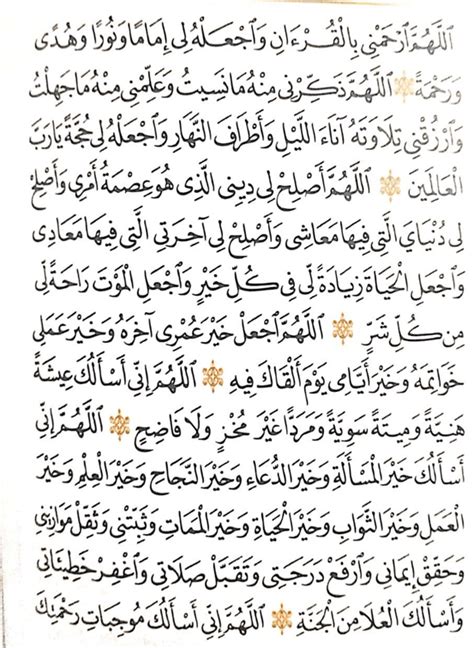 اَللَّهُمَّ ٱرْحَمْنِي بِالْقُرْءَانِ وَٱجْعَلْهُ لِي إِمَامًا وَنُورًا وَهُدًى
وَرَحْمَةً ۞ اَللَّهُمَّ ذَكِّرْنِي مِنْهُ مَا نَسِيتُ وَعَلِّمْنِي مِنْهُ مَا جَهِلْتُ
وَٱرْزُقْنِي تِلَاوَتَهُ آنَاءَ اللَّيْلِ وَأَطْرَافَ النَّهَارِ وَٱجْعَلْهُ لِي حُجَّةً يَارَبَّ
الْعَالَمِينَ ۞ اَللَّهُمَّ أَصْلِحْ لِي دِينِي الَّذِي هُوَ عِصْمَةُ أَمْرِي وَأَصْلِحْ
لِي دُنْيَايَ الَّتِي فِيهَا مَعَاشِي وَأَصْلِحْ لِي آخِرَتِي الَّتِي فِيهَا مَعَادِي
وَٱجْعَلِ الْحَيَاةَ زِيَادَةً لِي فِي كُلِّ خَيْرٍ وَٱجْعَلِ الْمَوْتَ رَاحَةً لِي
مِن كُلِّ شَرٍّ ۞ اَللَّهُمَّ ٱجْعَلْ خَيْرَ عُمْرِي آخِرَهُ وَخَيْرَ عَمَلِي
خَوَاتِمَهُ وَخَيْرَ أَيَّامِي يَوْمَ أَلْقَاكَ فِيهِ ۞ اَللَّهُمَّ إِنِّي أَسْأَلُكَ عِيشَةً
هَنِيَّةً وَمِيتَةً سَوِيَّةً وَمَرَدًّا غَيْرَ مُخْزٍ وَلَا فَاضِحٍ ۞ اَللَّهُمَّ إِنِّي
أَسْأَلُكَ خَيْرَ الْمَسْأَلَةِ وَخَيْرَ الدُّعَاءِ وَخَيْرَ النَّجَاحِ وَخَيْرَ الْعِلْمِ وَخَيْرَ
الْعَمَلِ وَخَيْرَ الثَّوَابِ وَخَيْرَ الْحَيَاةِ وَخَيْرَ الْمَمَاتِ وَثَبِّتْنِي وَثَقِّلْ مَوَازِينِي
وَحَقِّقْ إِيمَانِي وَٱرْفَعْ دَرَجَتِي وَتَقَبَّلْ صَلَاتِي وَٱغْفِرْ خَطِيئَاتِي
وَأَسْأَلُكَ الْعُلَا مِنَ الْجَنَّةِ ۞ اَللَّهُمَّ إِنِّي أَسْأَلُكَ مُوجِبَاتِ رَحْمَتِكَ